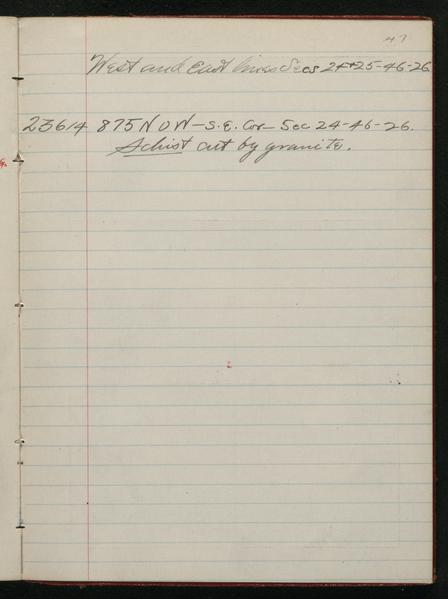 47
West and East lines Secs 24+25-46-26
23614 875 N 0 W - S.E. Cor - Sec 24-46-26.
Schist cut by granite.